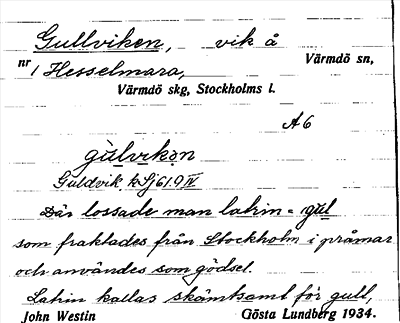 Gullviken, vik å
nr 1 Hesselmara, Värmdö sn,
Värmdö skg, Stockholms l.
A6
gulvikən
Guldvik k Sj 61.9 IV
Där lossade man latrin = gul
som fraktades från Stockholm i pråmar
och användes som gödsel.
Latrin kallas skämtsamt för gull,
John Westin Gösta Lundberg 1934.